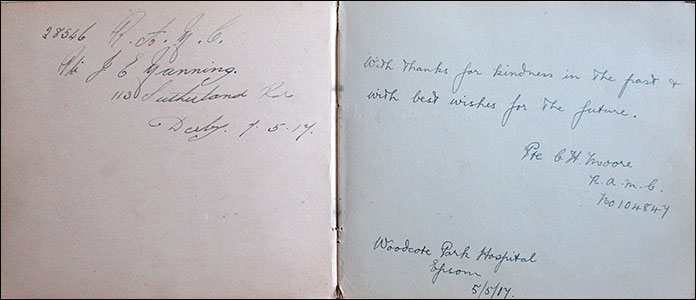 28546 R. A. M. C.
Pte J E Gunning.
113 Sutherland Rd
Derby. 7.5.17.
With thanks for kindness in the past &
with best wishes for the future.
Pte C. H. Moore
R. A. M. C.
No 104847
Woodcote Park Hospital
Epsom
5/5/17.